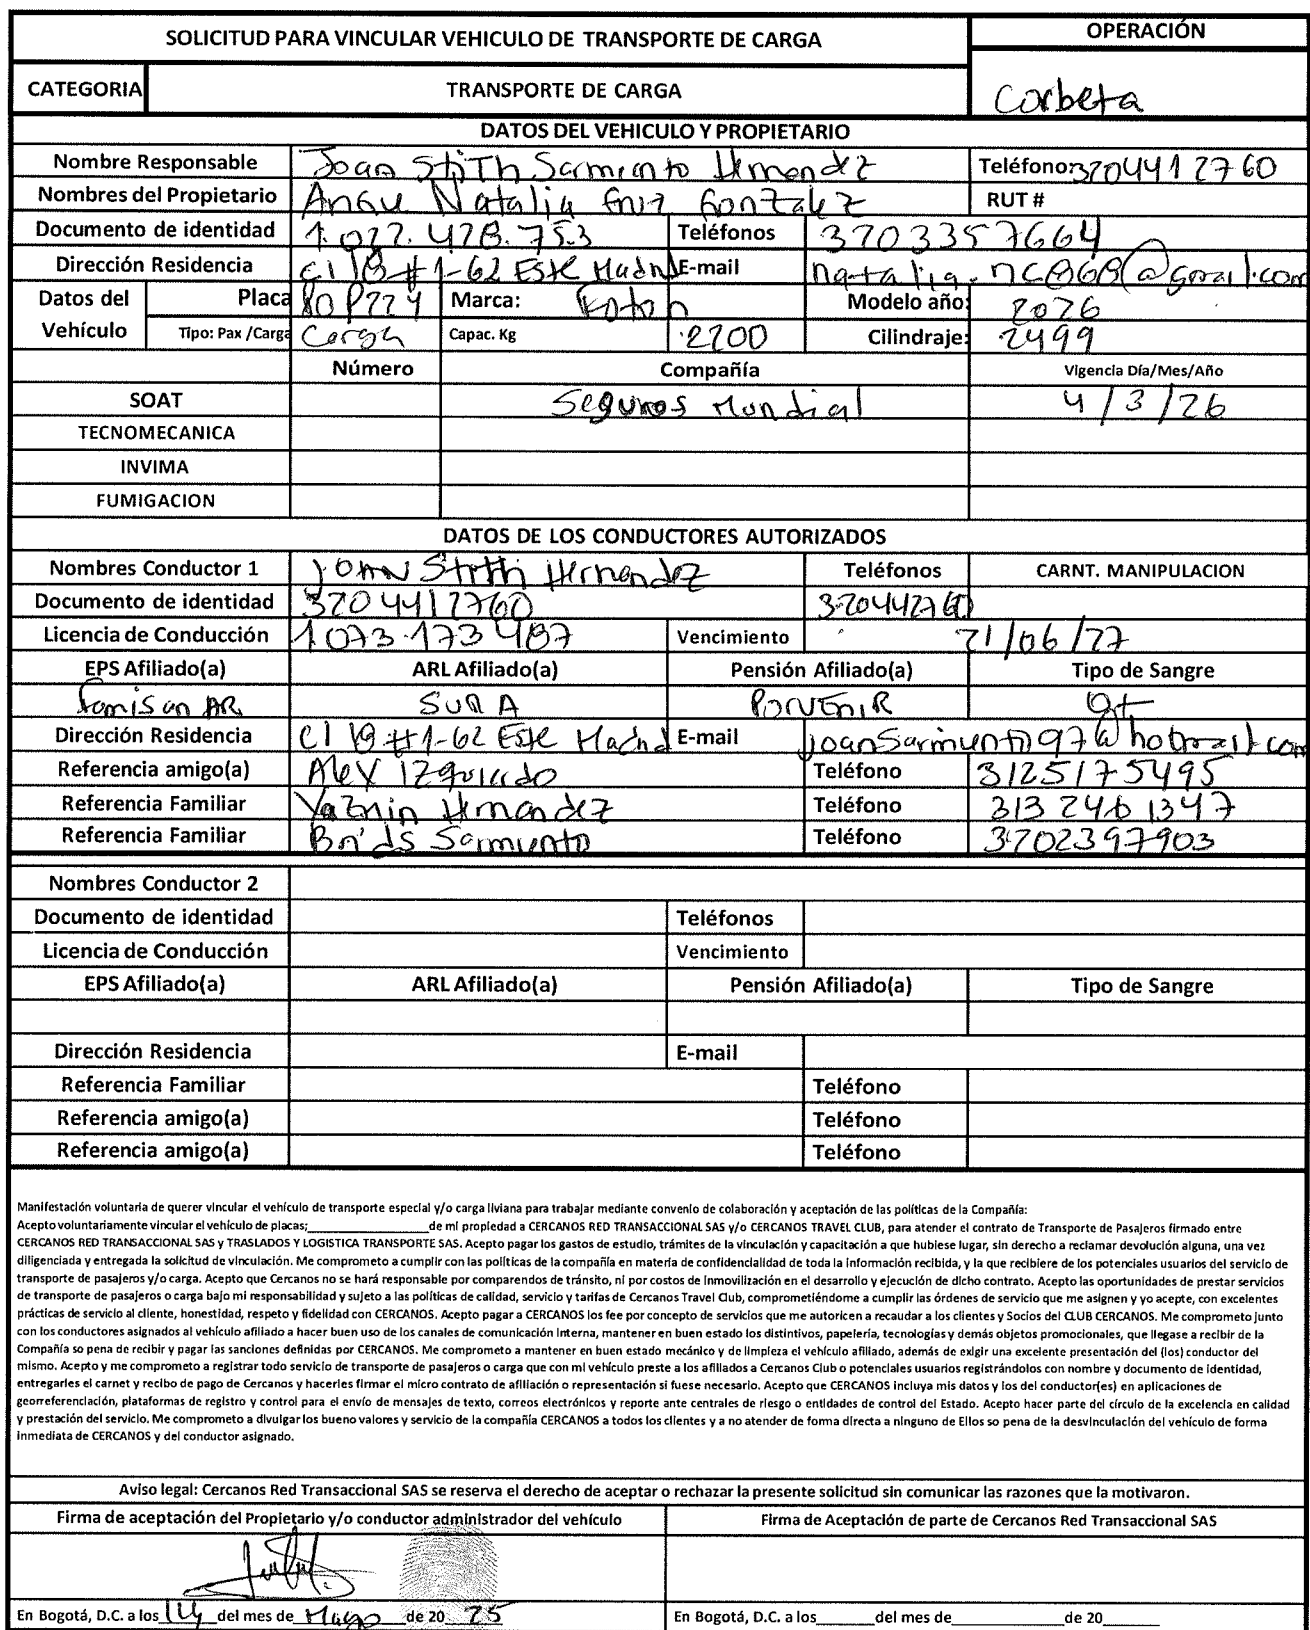 SOLICITUD PARA VINCULAR VEHICULO DE TRANSPORTE DE CARGA
OPERACIÓN
CATEGORIA TRANSPORTE DE CARGA
Corbeta
DATOS DEL VEHICULO Y PROPIETARIO
Nombre Responsable Joan Stith Sarmiento Hernandez Teléfono: 3204412760
Nombres del Propietario Natalia Gonzalez RUT #
Documento de identidad Teléfonos 3203357664
Dirección Residencia Cl #1-62 Este Madrid E-mail
Datos del Vehículo Placa Marca: Foton Modelo año: 2026
Tipo: Pax /Carga Carga Capac. Kg 2200 Cilindraje: 2499
Número Compañía Vigencia Día/Mes/Año
SOAT Seguros Mundial 4/3/26
TECNOMECANICA
INVIMA
FUMIGACION
DATOS DE LOS CONDUCTORES AUTORIZADOS
Nombres Conductor 1 Hernandez Teléfonos CARNT. MANIPULACION
Documento de identidad 3204412760 320442760
Licencia de Conducción 1.073.173.487 Vencimiento 21/06/27
EPS Afiliado(a) ARL Afiliado(a) Pensión Afiliado(a) Tipo de Sangre
SURA PORVENIR
Dirección Residencia Cl #1-62 Este Madrid E-mail
Referencia amigo(a) Alex Izquierdo Teléfono 3125175495
Referencia Familiar Yazmin Hernandez Teléfono
Referencia Familiar Sarmiento Teléfono 3202397903
Nombres Conductor 2
Documento de identidad Teléfonos
Licencia de Conducción Vencimiento
EPS Afiliado(a) ARL Afiliado(a) Pensión Afiliado(a) Tipo de Sangre
Dirección Residencia E-mail
Referencia Familiar Teléfono
Referencia amigo(a) Teléfono
Referencia amigo(a) Teléfono
Manifestación voluntaria de querer vincular el vehículo de transporte especial y/o carga liviana para trabajar mediante convenio de colaboración y aceptación de las políticas de la Compañía:
Acepto voluntariamente vincular el vehículo de placas;____________________de mi propiedad a CERCANOS RED TRANSACCIONAL SAS y/o CERCANOS TRAVEL CLUB, para atender el contrato de Transporte de Pasajeros firmado entre
CERCANOS RED TRANSACCIONAL SAS y TRASLADOS Y LOGISTICA TRANSPORTE SAS. Acepto pagar los gastos de estudio, trámites de la vinculación y capacitación a que hubiese lugar, sin derecho a reclamar devolución alguna, una vez
diligenciada y entregada la solicitud de vinculación. Me comprometo a cumplir con las políticas de la compañía en materia de confidencialidad de toda la información recibida, y la que recibiere de los potenciales usuarios del servicio de
transporte de pasajeros y/o carga. Acepto que Cercanos no se hará responsable por comparendos de tránsito, ni por costos de inmovilización en el desarrollo y ejecución de dicho contrato. Acepto las oportunidades de prestar servicios
de transporte de pasajeros o carga bajo mi responsabilidad y sujeto a las políticas de calidad, servicio y tarifas de Cercanos Travel Club, comprometiéndome a cumplir las órdenes de servicio que me asignen y yo acepte, con excelentes
prácticas de servicio al cliente, honestidad, respeto y fidelidad con CERCANOS. Acepto pagar a CERCANOS los fee por concepto de servicios que me autoricen a recaudar a los clientes y Socios del CLUB CERCANOS. Me comprometo junto
con los conductores asignados al vehículo afiliado a hacer buen uso de los canales de comunicación interna, mantener en buen estado los distintivos, papelería, tecnologías y demás objetos promocionales, que llegase a recibir de la
Compañía so pena de recibir y pagar las sanciones definidas por CERCANOS. Me comprometo a mantener en buen estado mecánico y de limpieza el vehículo afiliado, además de exigir una excelente presentación del (los) conductor del
mismo. Acepto y me comprometo a registrar todo servicio de transporte de pasajeros o carga que con mi vehículo preste a los afiliados a Cercanos Club o potenciales usuarios registrándolos con nombre y documento de identidad,
entregarles el carnet y recibo de pago de Cercanos y hacerles firmar el micro contrato de afiliación o representación si fuese necesario. Acepto que CERCANOS incluya mis datos y los del conductor(es) en aplicaciones de
georreferenciación, plataformas de registro y control para el envío de mensajes de texto, correos electrónicos y reporte ante centrales de riesgo o entidades de control del Estado. Acepto hacer parte del círculo de la excelencia en calidad
y prestación del servicio. Me comprometo a divulgar los bueno valores y servicio de la compañía CERCANOS a todos los clientes y a no atender de forma directa a ninguno de Ellos so pena de la desvinculación del vehículo de forma
inmediata de CERCANOS y del conductor asignado.
Aviso legal: Cercanos Red Transaccional SAS se reserva el derecho de aceptar o rechazar la presente solicitud sin comunicar las razones que la motivaron.
Firma de aceptación del Propietario y/o conductor administrador del vehículo Firma de Aceptación de parte de Cercanos Red Transaccional SAS
En Bogotá, D.C. a los 14 del mes de Mayo de 20 25 En Bogotá, D.C. a los_______del mes de______________de 20_______